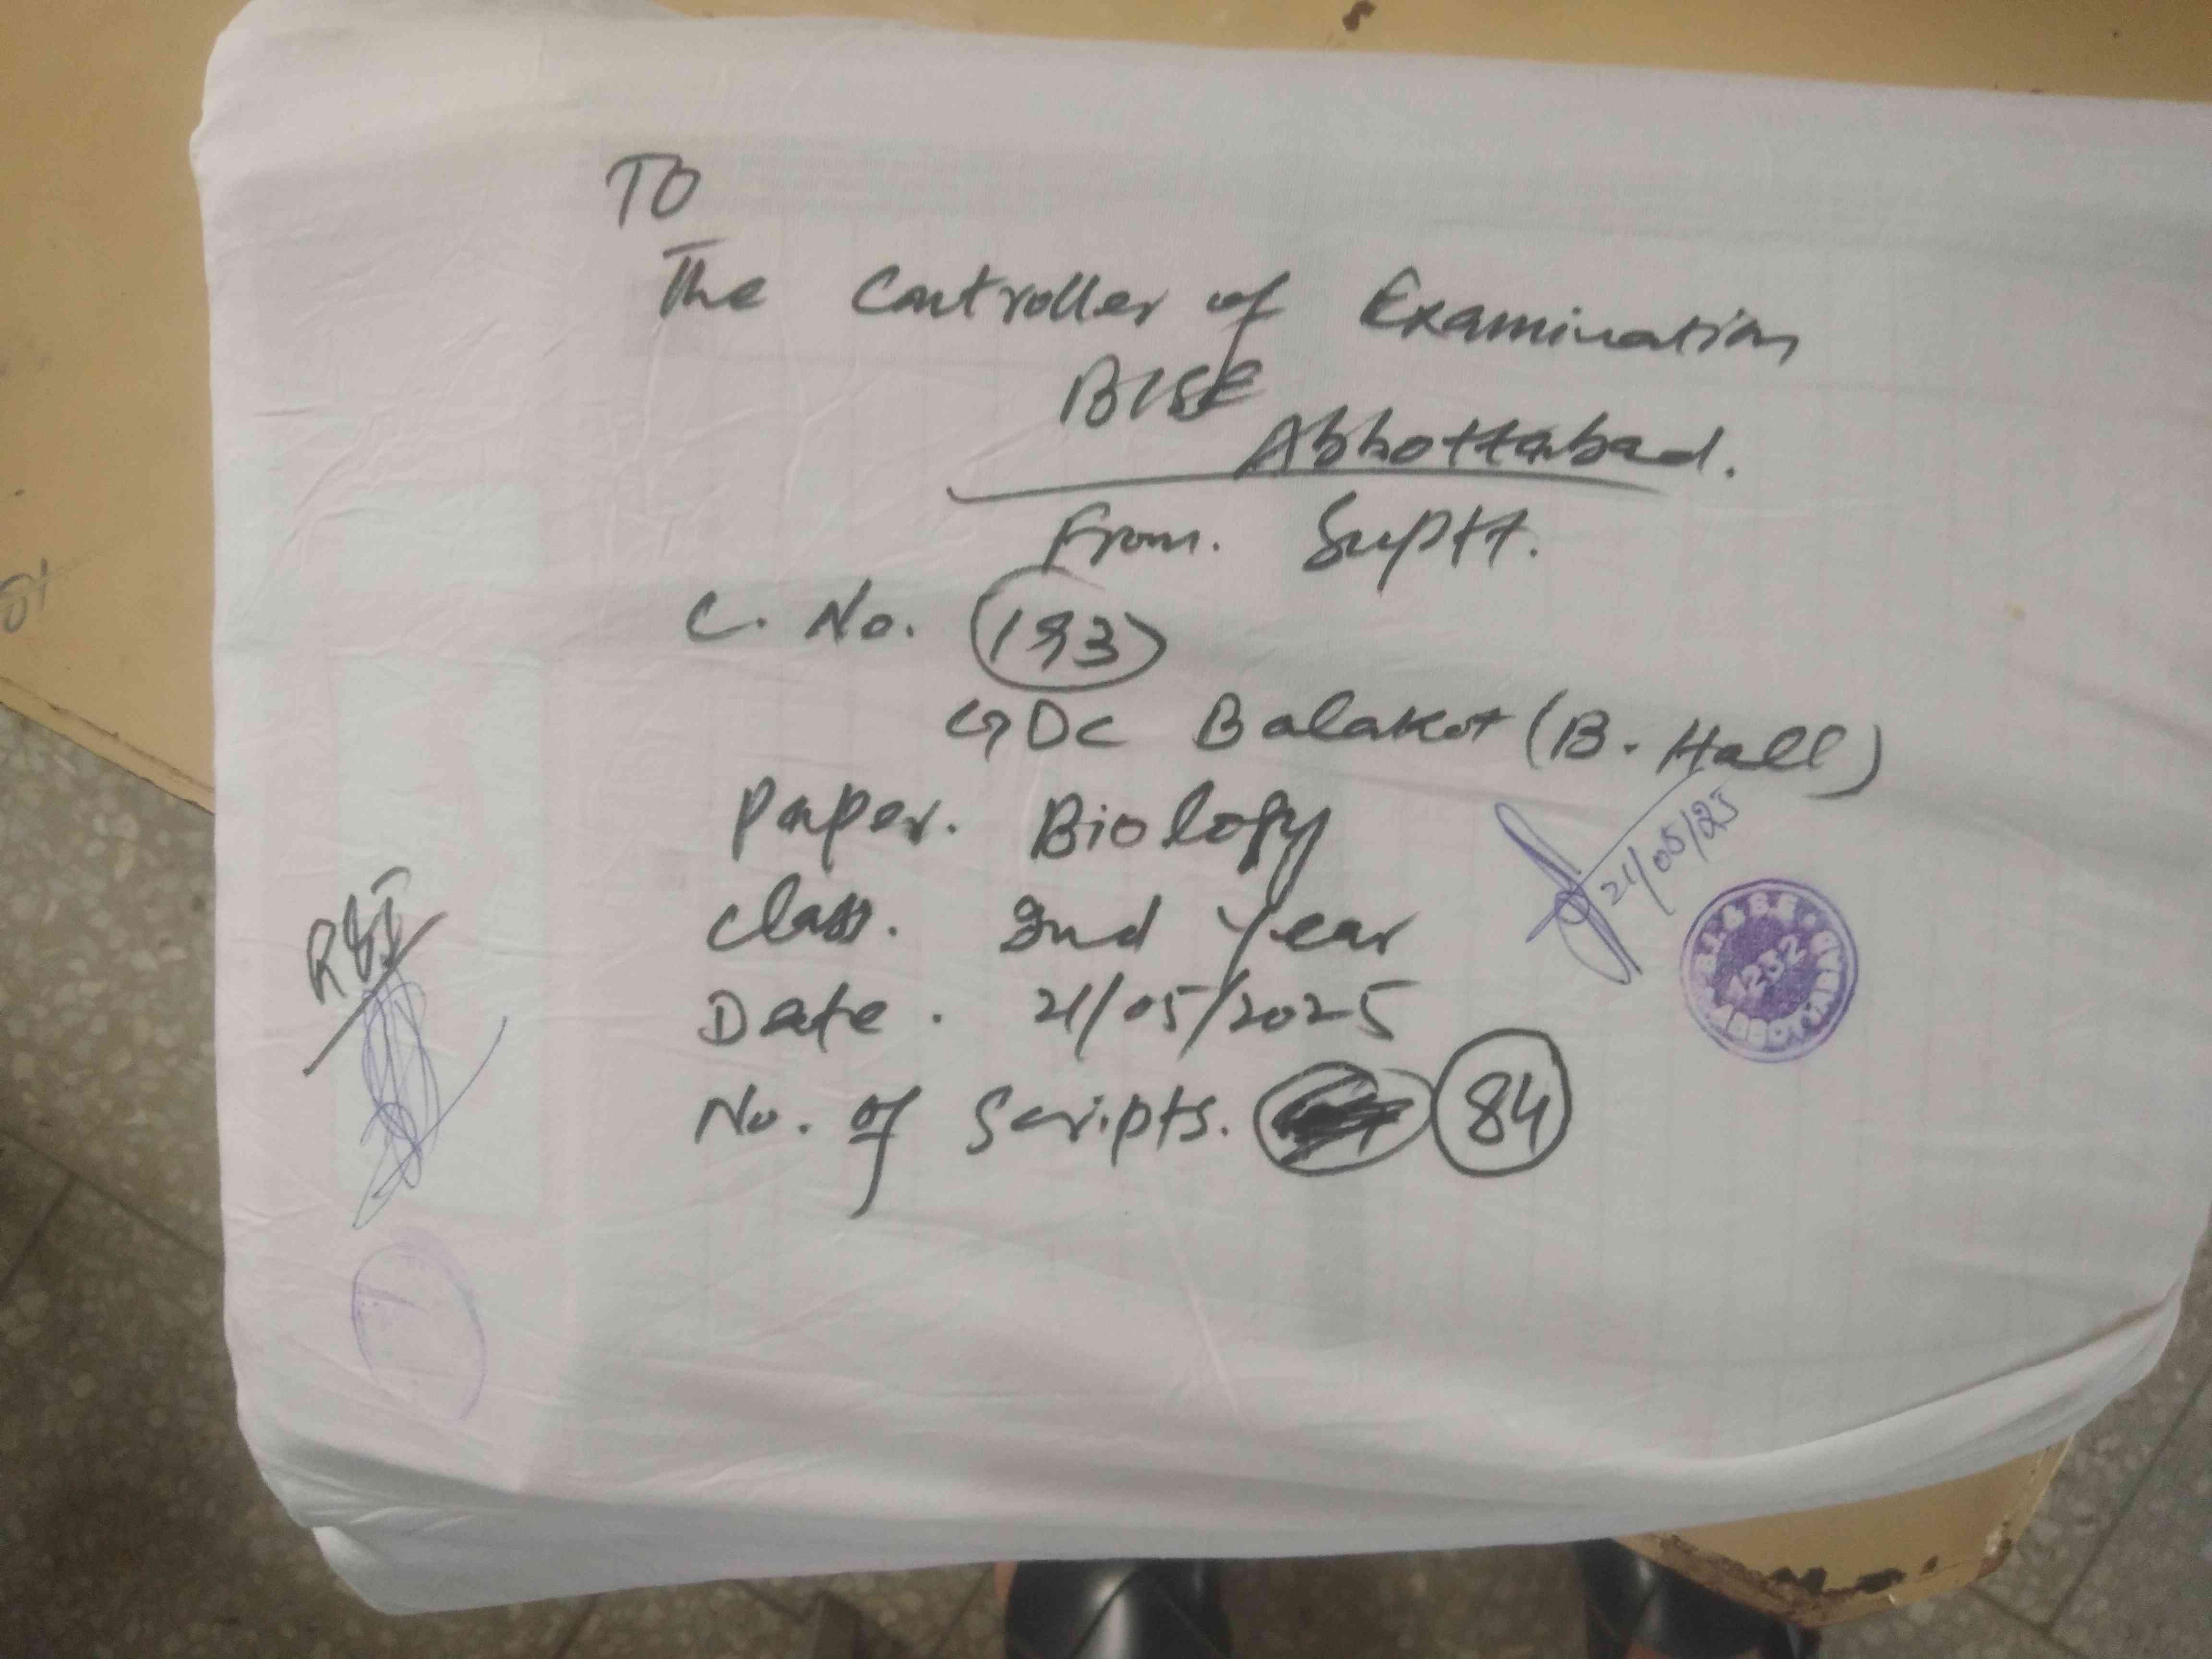 TO
The Controller of Examination
BISE
Abbottabad.
From. Suptt.
C. No. 193
GDC Balakot (B. Hall)
Paper. Biology
Class. 2nd Year
Date. 21/05/2025
No. of Scripts. 84
21/05/25
B.I. & S.E. ABBOTTABAD
1232